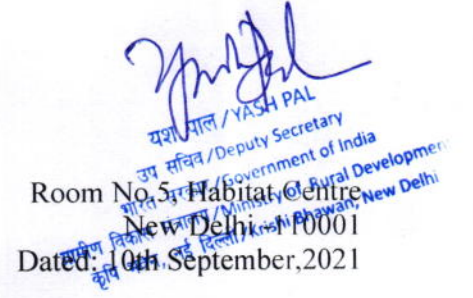 यश पाल/YASH PAL
उप सचिव/Deputy Secretary
भारत सरकार/Government of India
ग्रामीण विकास मंत्रालय/Ministry of Rural Developmen
कृषि भवन, नई दिल्ली/Krishi Bhawan, New Delhi
Room No.5, Habitat Centre
New Delhi -110001
Dated: 10th September,2021